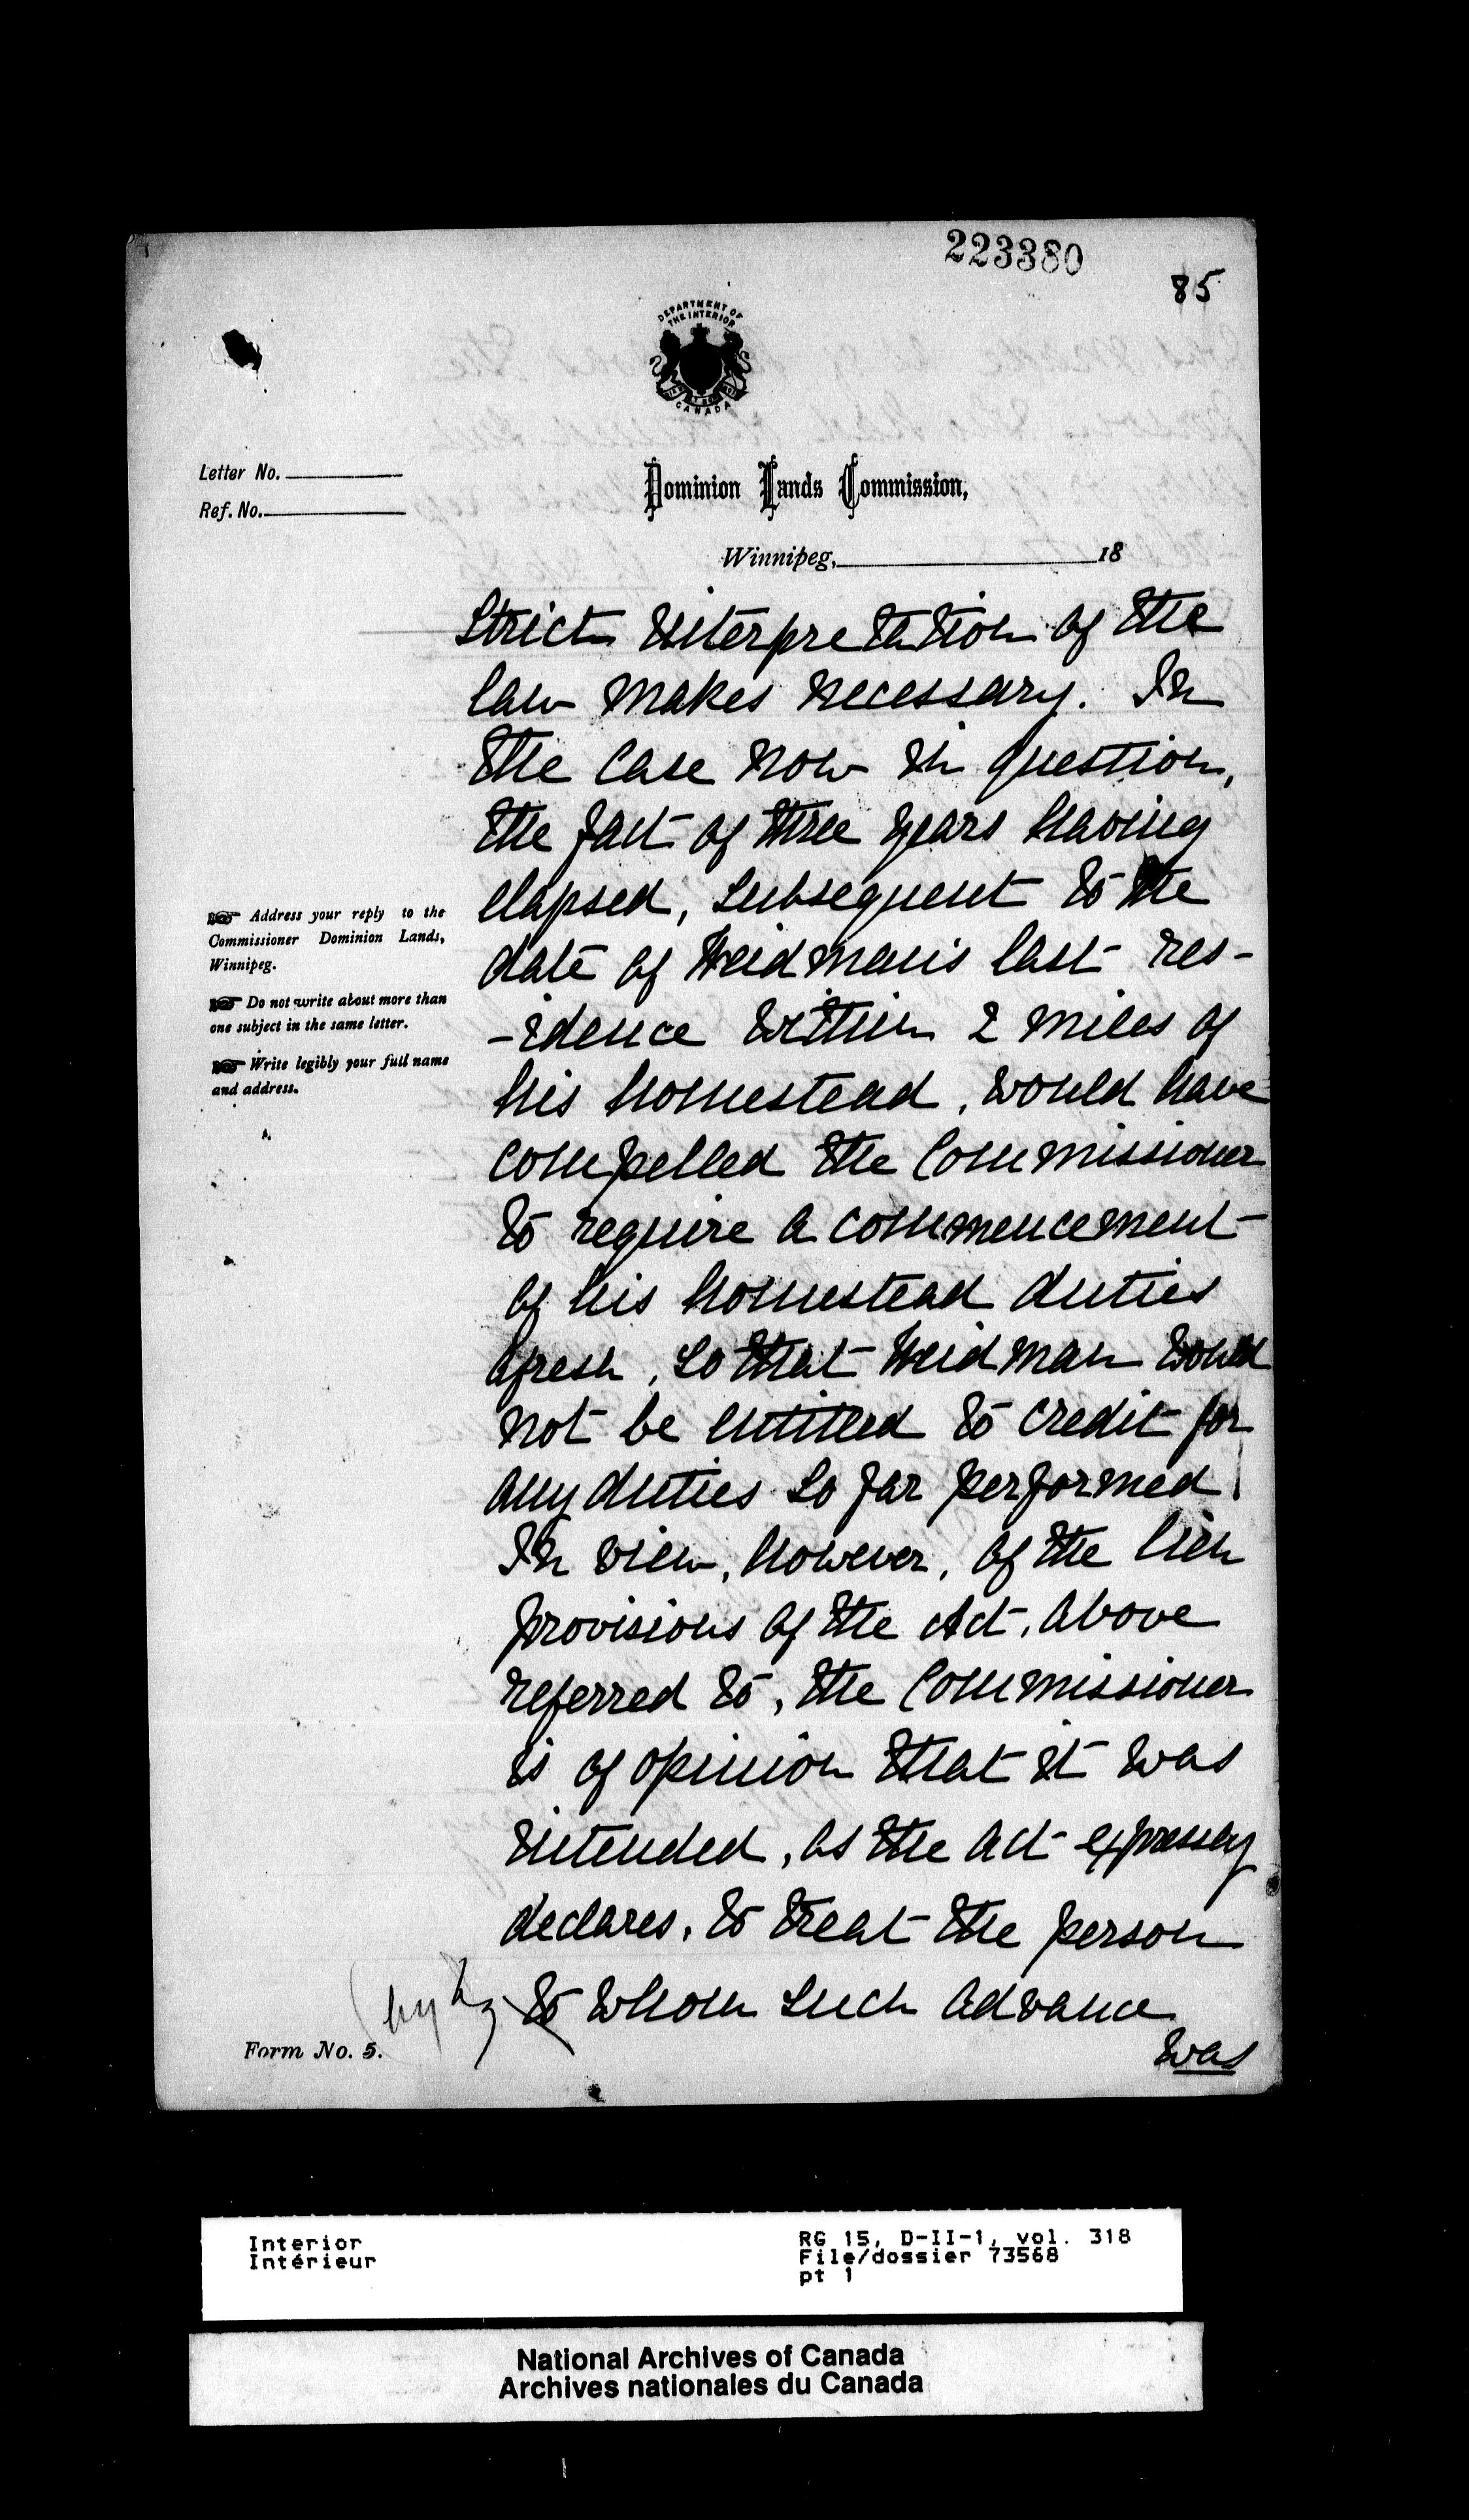 223380
85
DEPARTMENT OF
THE INTERIOR
CANADA
Letter No.
Ref. No.
Dominion Lands Commission,
Winnipeg, 18
strict interpretation of the
law makes necessary. In
the case now in question,
the fact of three years having
elapsed, subsequent to the
date of Heidman's last res-
-idence within 2 miles of
his homestead, would have
compelled the Commissioner
to require a commencement
of his homestead duties
afresh, so that Heidman would
not be entitled to credit for
any duties so far performed.
In view, however, of the lien
provisions of the Act, above
referred to, the Commissioner
is of opinion that it was
intended, as the act expressly
declares, to treat the person
by to whom such advance
was
Address your reply to the
Commissioner Dominion Lands,
Winnipeg.
Do not write about more than
one subject in the same letter.
Write legibly your full name
and address.
Form No. 5.
Interior
Intérieur
RG 15, D-II-1, vol. 318
File/dossier 73568
pt 1
National Archives of Canada
Archives nationales du Canada